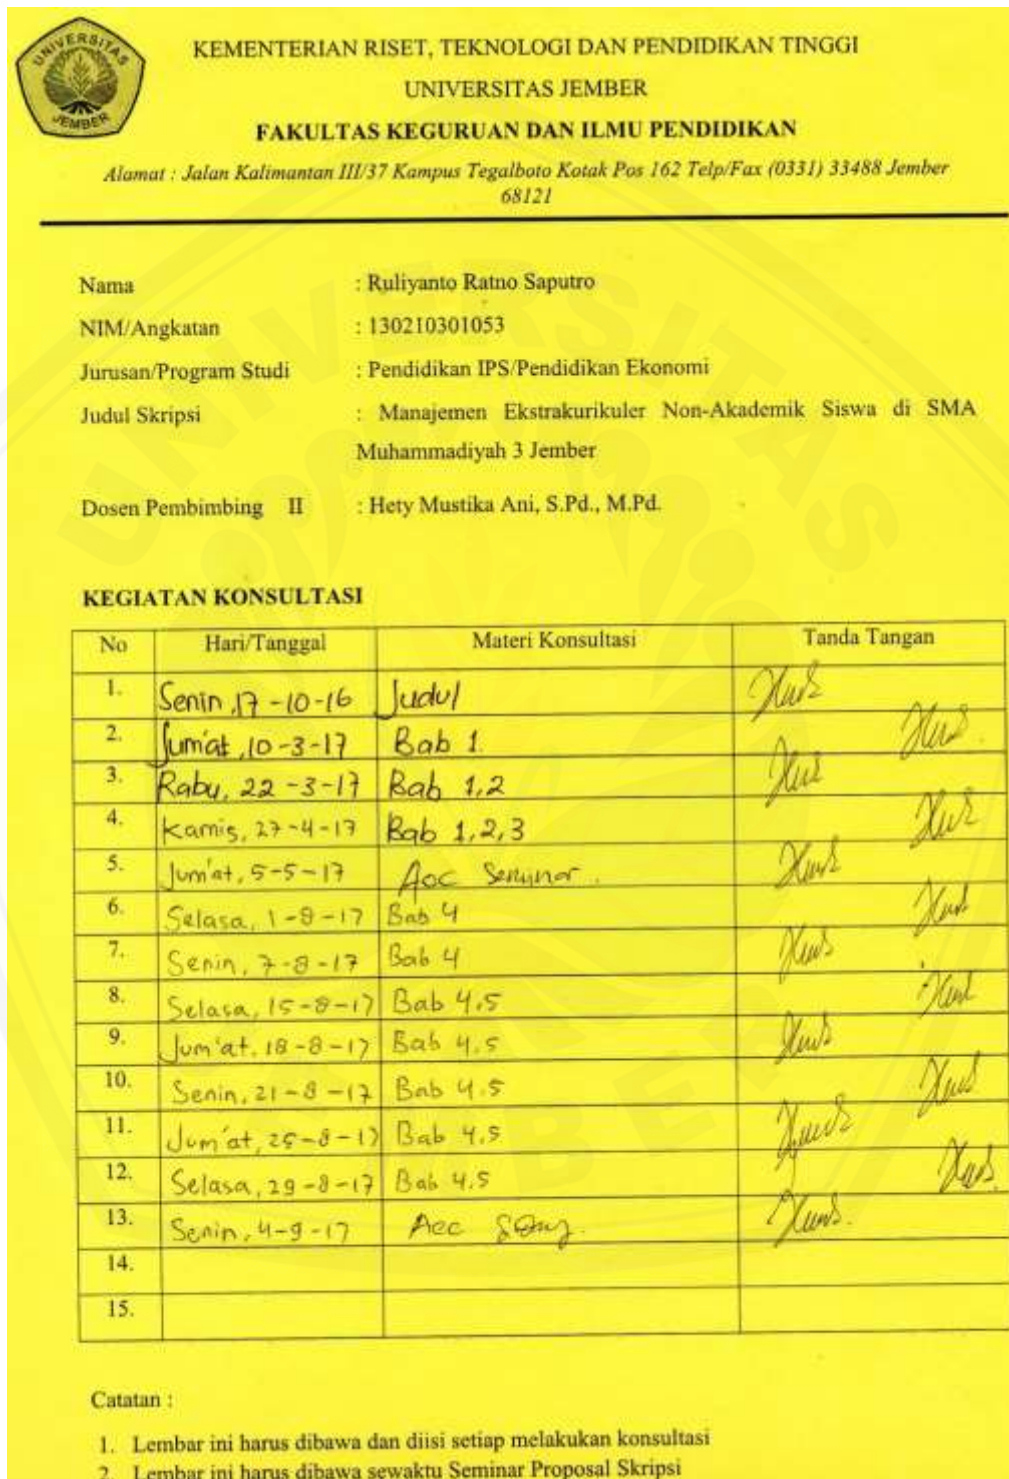 UNIVERSITAS
JEMBER
KEMENTERIAN RISET, TEKNOLOGI DAN PENDIDIKAN TINGGI
UNIVERSITAS JEMBER
FAKULTAS KEGURUAN DAN ILMU PENDIDIKAN
Alamat : Jalan Kalimantan III/37 Kampus Tegalboto Kotak Pos 162 Telp/Fax (0331) 33488 Jember
68121
Nama : Ruliyanto Ratno Saputro
NIM/Angkatan : 130210301053
Jurusan/Program Studi : Pendidikan IPS/Pendidikan Ekonomi
Judul Skripsi : Manajemen Ekstrakurikuler Non-Akademik Siswa di SMA
Muhammadiyah 3 Jember
Dosen Pembimbing II : Hety Mustika Ani, S.Pd., M.Pd.
KEGIATAN KONSULTASI
No Hari/Tanggal Materi Konsultasi Tanda Tangan
1. Senin, 17-10-16 Judul
2. Jum'at, 10-3-17 Bab 1.
3. Rabu, 22-3-17 Bab 1,2
4. Kamis, 27-4-17 Bab 1,2,3
5. Jum'at, 5-5-17 Acc Seminar.
6. Selasa, 1-8-17 Bab 4
7. Senin, 7-8-17 Bab 4
8. Selasa, 15-8-17 Bab 4.5
9. Jum'at, 18-8-17 Bab 4.5
10. Senin, 21-8-17 Bab 4.5
11. Jum'at, 25-8-17 Bab 4.5
12. Selasa, 29-8-17 Bab 4.5
13. Senin, 4-9-17 Acc
14.
15.
Catatan :
1. Lembar ini harus dibawa dan diisi setiap melakukan konsultasi
2. Lembar ini harus dibawa sewaktu Seminar Proposal Skripsi